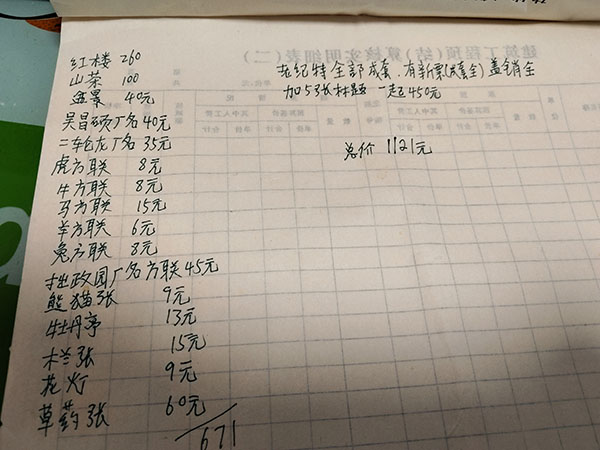 红楼 260
山茶 100
盆景 40元
吴昌硕厂名 40元
二轮龙厂名 35元
虎方联 8元
牛方联 8元
马方联 15元
羊方联 6元
兔方联 8元
拙政园厂名方联 45元
熊猫张 9元
牡丹亭 13元
木兰张 15元
花灯 9元
草药张 60元
671
老纪特全部成套.有新票(成套全)盖销全
加5张标题 一起450元
总价 1121元
建筑工程预(结)算核实明细表(二)